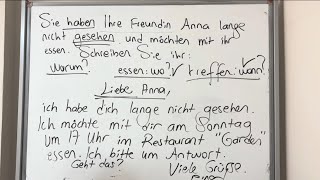 Sie haben Ihre Freundin Anna lange
nicht gesehen und möchten mit ihr
essen. Schreiben Sie ihr:
Warum? essen: wo? treffen: wann?
Liebe Anna,
ich habe dich lange nicht gesehen.
Ich möchte mit dir am Sonntag
um 17 Uhr im Restaurant "Garden"
essen. Ich bitte um Antwort.
Geht das? Viele Grüße